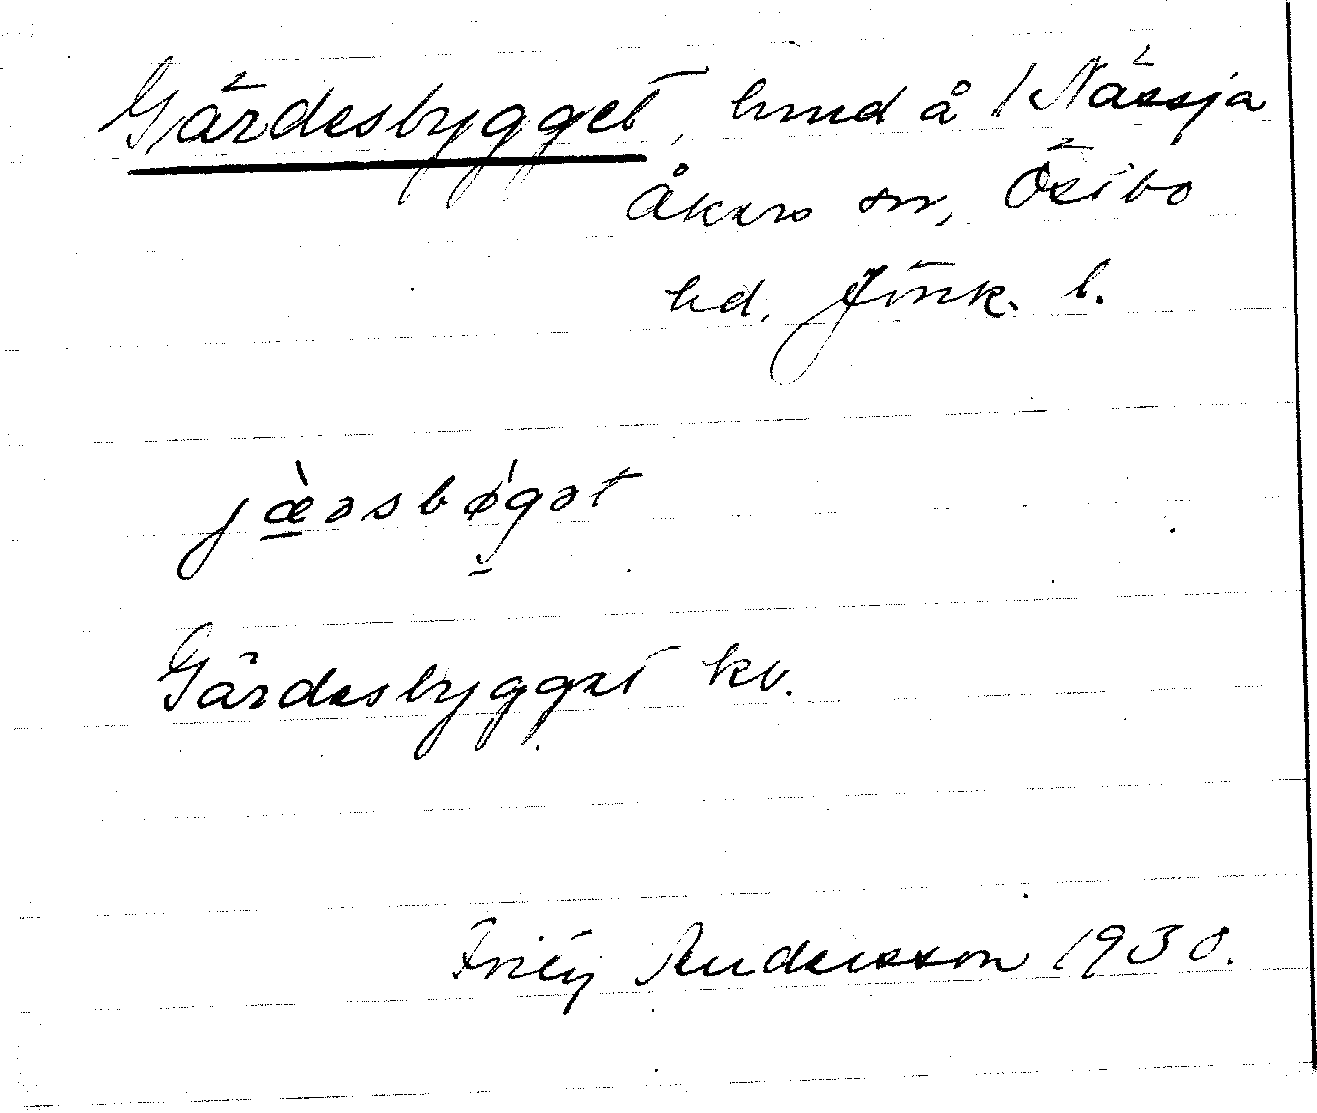 Gärdesbygget, hmd å 1 Nässja
Åkers sn, Östbo
hd. Jönk. l.
jæ̀əsbǿgət
Gärdesbygget kv.
Andersson 1930.